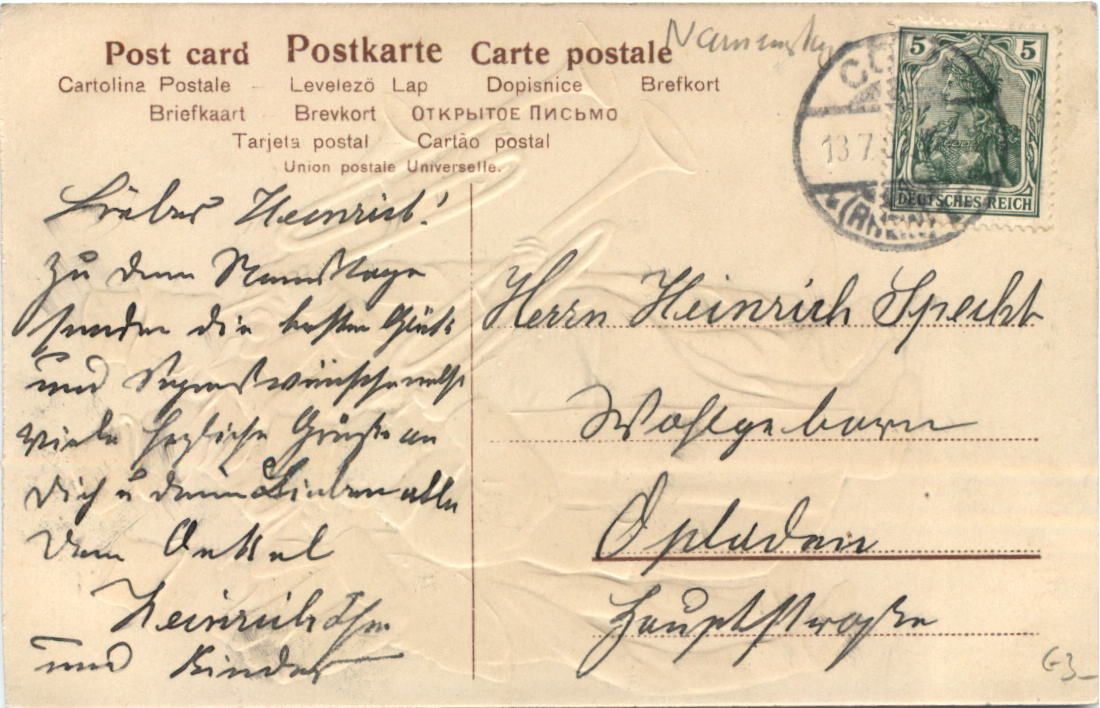 Post card Postkarte Carte postale
Cartolina Postale Levelező Lap Dopisnice Brefkort
Briefkaart Brevkort ОТКРЫТОЕ ПИСЬМО
Tarjeta postal Cartão postal
Union postale Universelle.
5 5
13 7
(RHEIN)
DEUTSCHES REICH
Lieber Heinrich!
Zu dem Namenstage
senden die besten Glück
und Segenswünsche nebst
viele herzliche Grüße an
Dich u deine Lieben alle
Dein Onkel
Heinrich
und Kinder
Herrn Heinrich Specht
Wohlgeboren
Opladen
Hauptstraße